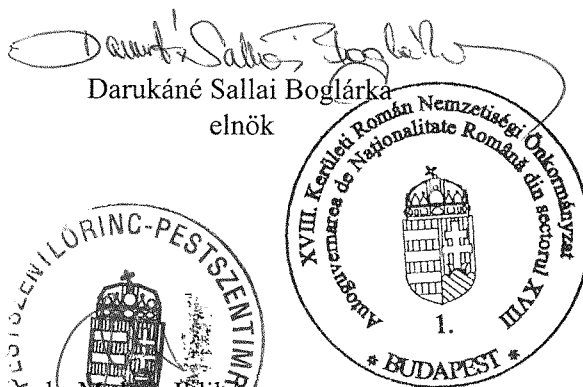 Darukáné Sallai Boglárka
Darukáné Sallai Boglárka
elnök
XVIII. Kerületi Román Nemzetiségi Önkormányzat
Autoguvernarea de Naţionalitate Română din sectorul XVIII
1.
* BUDAPEST *
PESTSZENTLŐRINC-PESTSZENTIMR